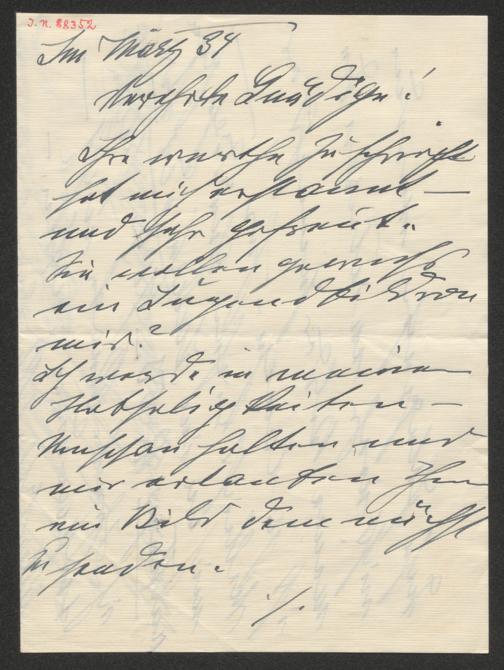 I.N. 88352
Im März 34
Verehrte Gnädige!
Ihre werthe Zuschrift
hat mich erstaunt –
und sehr gefreut.
Sie wollen
ein Jugendbild von
mir?
Ich werde in meinen
Habseligkeiten –
Umschau halten und
mir erlauben Ihnen
ein Bild demnächst
zu senden.
./.